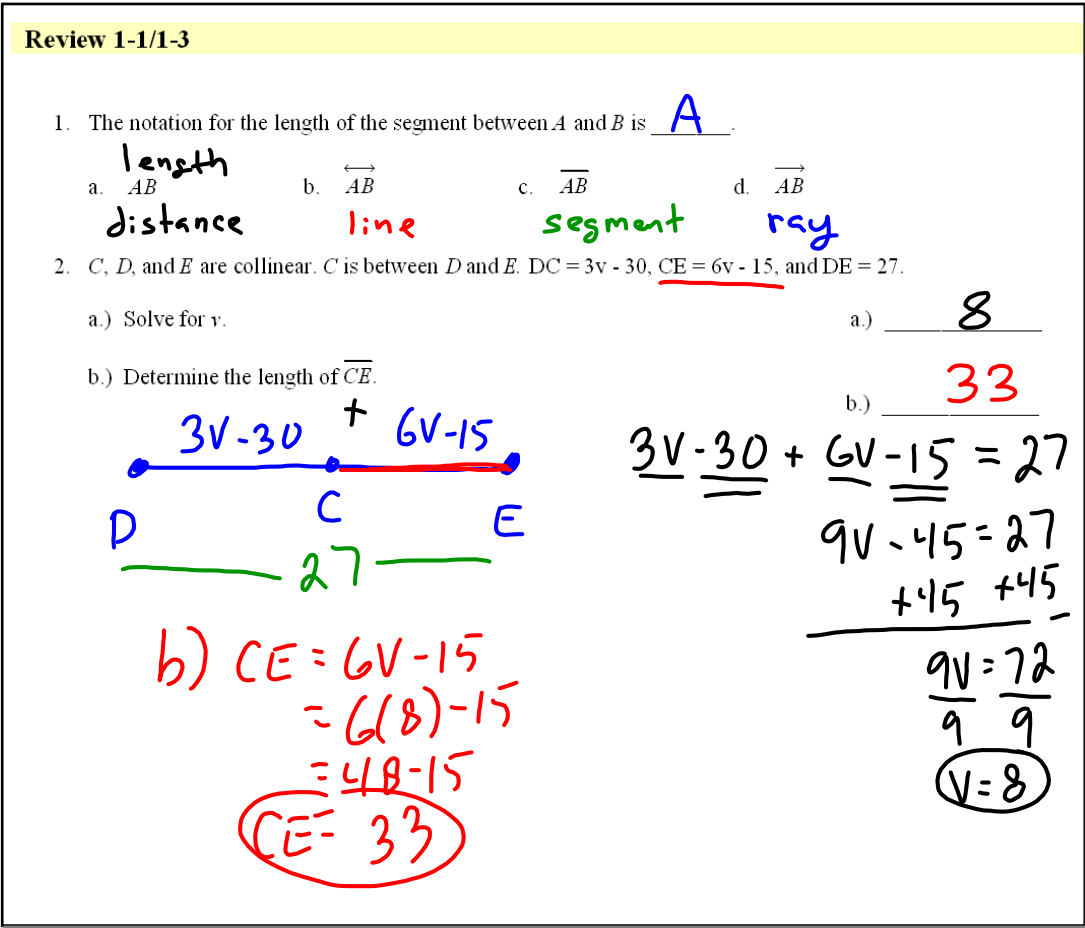 Review 1-1/1-3
1. The notation for the length of the segment between A and B is A.
length
a. AB b. AB c. AB d. AB
distance line segment ray
2. C, D, and E are collinear. C is between D and E. DC = 3v - 30, CE = 6v - 15, and DE = 27.
a.) Solve for v. a.) 8
b.) Determine the length of CE. b.) 33
3V-30 + 6V-15
D C E
27
3V-30 + 6V-15 = 27
9V-45=27
+45 +45
9V=72
9 9
V=8
b) CE=6V-15
=6(8)-15
=48-15
CE=33